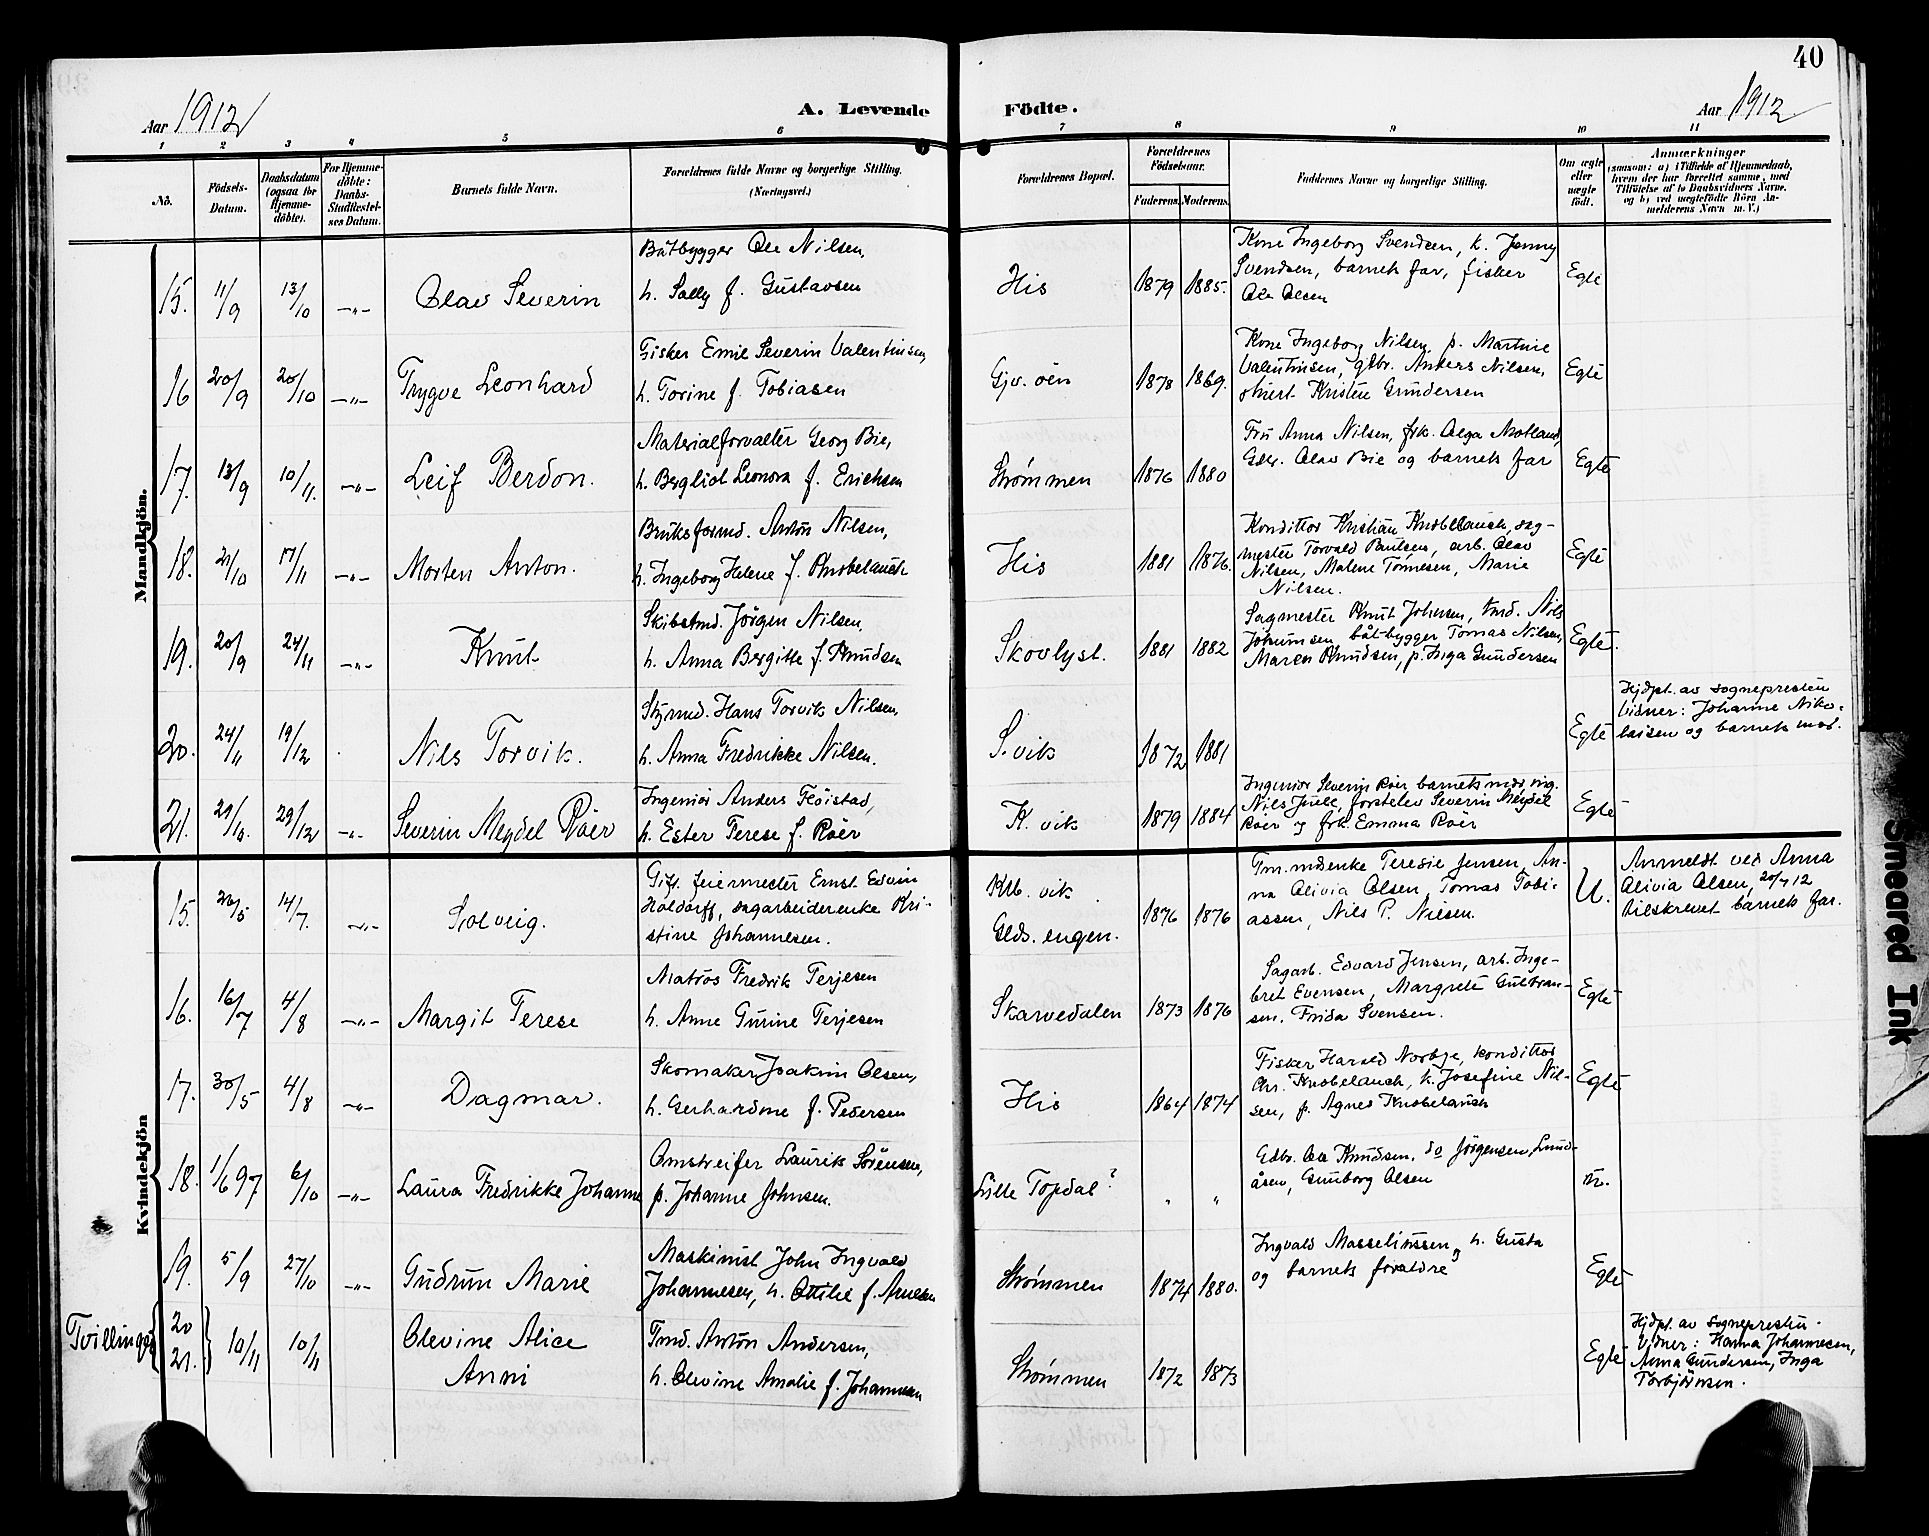 40
Aar 1912
A. Levende
Födte.
Aar 1912
1 2 3 4 5 6 7 8 9 10 11
No.
Födsels-
Datum.
Daabsdatum
(ogsaa for
Hjemme-
döbte).
For Hjemme-
döbte:
Daabs
Stadfæstel-
ses Datum.
Barnets fulde Navn.
Forældrenes fulde Navne og borgerlige Stilling.
(Næringsvei.)
Forældrenes Bopæl.
Forældrenes
Födselsaar.
Faderens. Moderens.
Faddernes Navne og borgerlige Stilling.
Om ægte
eller
uægte
født.
Anmærkninger
(saasom: a) i Tilfælde af Hjemmedaab,
hvem der har forrettet samme, med
Tilföielse af to Daabsvidners Navne,
og b) ved uægtefödte Börn An-
melderens Navn m. V.)
Mandkjön.
15. 11/9 13/10 -"- Olav Severin
Båtbygger Ole Nilsen,
h. Sally f. Gustavsen
His 1879 1885.
Kone Ingeborg Svendsen, k. Jenny
Svendsen, barnets far, fisker
Ole Olsen
Egte
16 20/9 20/10 -"- Trygve Leonhard
Fisker Emil Severin Valentinsen,
h. Torine f. Tobiasen
Gjv. öen 1878 1869.
Kone Ingeborg Nilsen, p. Martine
Valentinsen, gtbr. Anders Nilsen,
Kristen Gundersen
Egte
17. 13/9 10/11. -"- Leif Berdon.
Materialforvalter Georg Bie,
h. Bergliot Leonora f. Erichsen
Strømmen 1876 1880
Fru Anna Nilsen, frk. Olga Motland,
Olav Bie og barnets far
Egte
18. 21/10 17/11 -"- Morten Anton.
Bruksformd. Anton Nilsen,
h. Ingeborg Helene f. Knobelauch
His 1881 1876.
Konditor Kristian Knobelauch, sag-
mester Torvald Paulsen, arb. Olav
Nilsen, Malene Tönnesen, Marie
Nilsen.
Egte
19. 20/9 24/11 -"- Knut
Skibstmd. Jörgen Nilsen,
h. Anna Bergitte f. Knudsen
Skovlyst. 1881 1882
Sagmester Knut Johnsen, tmd. Nils
båtbygger Tomas Nilsen,
Maren Knudsen, p. Inga Gundersen
Egte.
20. 24/11 19/12 Nils Torvik.
Styrmd. Hans Torvik Nilsen,
h. Anna Fredrikke Nilsen.
S. vik 1872 1881
Egte
Hjdpt. av sognepresten
Vidner: Johanne Niko-
laisen og barnets mor.
21. 29/10. 29/12 -"- Severin Meydel Röer
Ingeniör Anders Flöistad,
h. Ester Terese f. Röer
K. vik 1879 1884
Ingeniör Severin Röer barnets mor, ing.
Nils Juell, forstelev Severin Meydel
Röer og frk. Emma Röer
Egte
Kvindekjön
15. 20/5 14/7. -"- Solveig.
Gift feiermester Ernst Edvin
Holdorff, sagarbeiderenke Kri-
stine Johannesen.
Klb. vik
Glds. engen.
1876 1876
Tm.mdsenke Teresie Jensen, An-
na Olivia Olsen, Tomas Tobi-
assen, Nils P. Nilsen.
U.
Anmeldt ved Anna
Olivia Olsen, 20/7 12
tilskrevet barnets far.
16. 16/7 4/8 -"- Margit Terese
Matros Fredrik Terjesen
h. Anne Gurine Terjesen
Skarvedalen 1873 1876
Sagarb. Edvard Jensen, arb. Inge-
bret Evensen, Margrete Gulbran-
sen, Frida Svensen.
Egte
17. 30/5 4/8 -"- Dagmar.
Skomaker Joakim Olsen,
h. Gerhardine f. Pedersen
His 1864 1874
Fisker Harald Norbye, konditor
Chr. Knobelauch, k. Josefine Nil-
sen, p. Agnes Knobelauch
Egte
18. 1/6 97 6/10 -"- Laura Fredrikke Johanne
Omstreifer Laurits Sörensen,
p. Johanne Johnsen.
Lille Topdal? " "
Gdbr. Ole Knudsen, do Jörgensen, Lund-
åsen, Gunborg Olsen
u.
19. 5/9 27/10 -"- Gudrun Marie
Maskinist John Ingvald
Johannesen, h. Ottilie f. Arnesen
Strømmen 1874 1880.
Ingvald Masselinssen, h. Gusta
og barnets foraldre
Egte
Tvillinger
20
21. 10/11 10/11
Olevine Alice
Anni
Tmd. Anton Andersen,
h. Olevine Amalie f. Johannesen
Strømmen 1872 1873
Egte
Hjdpt. av sognepresten.
Vidner: Hanna Johannesen,
Anna Gundersen, Inga
Torbjörnsen.
Smeared Ink